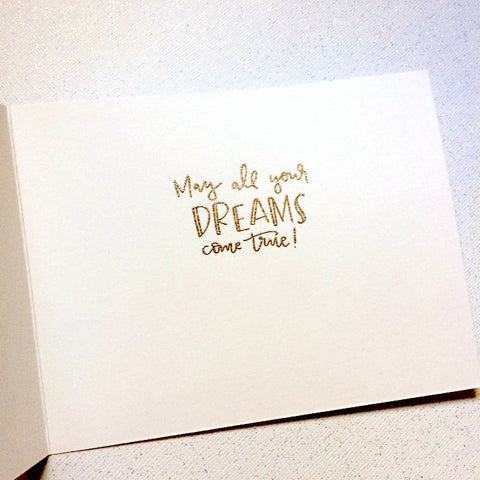 May all your
DREAMS
come true!